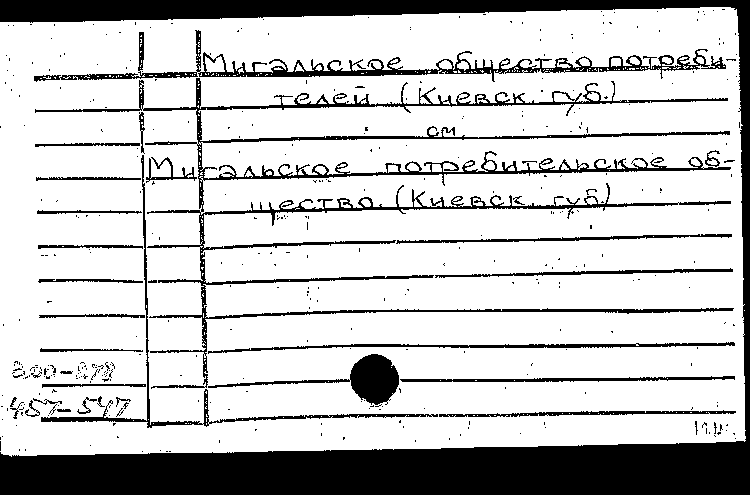 Мигальское общество потреби-
телей (Киевск. губ.)
см.
Мигальское потребительское об-
щество. (Киевск. губ.)
200-278
457-547